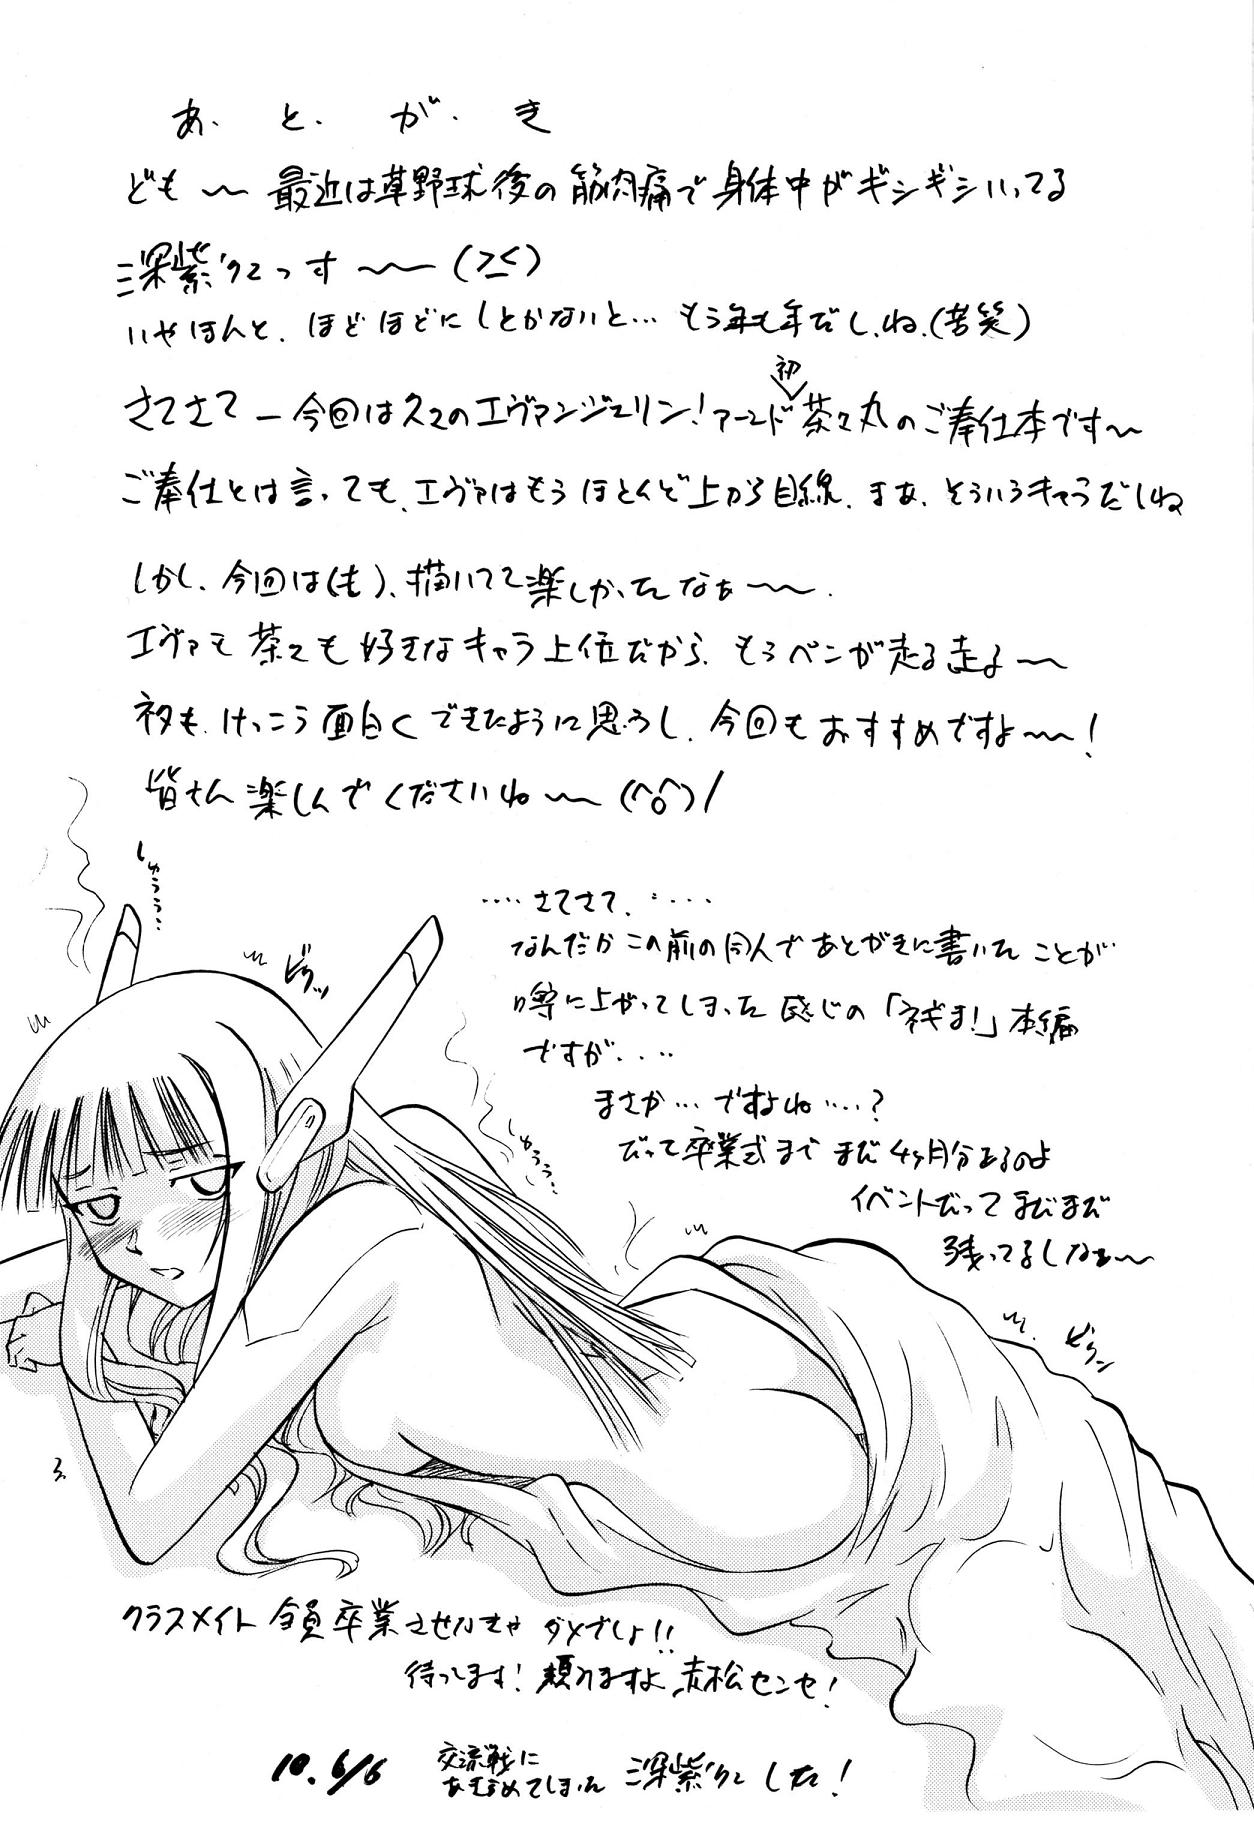 あ と が き
ども〜〜 最近は草野球後の筋肉痛で身体中がギシギシいってる
深紫っす〜〜(><)
いやほんと、ほどほどにしとかないと… もう年も年だし、ね、(苦笑)
さてさてー今回は久々のエヴァンジェリン!アーンド初茶々丸のご奉仕本です〜
ご奉仕とは言っても、エヴァはもうほとんど上から目線、まあ、そういうキャラだしね
しかし、今回は(も)、描いてて楽しかったなぁ〜〜。
エヴァも茶々も好きなキャラ上位だから、もうペンが走る走る〜〜
ネタも、けっこう面白くできたように思うし、今回もおすすめですよ〜〜!
皆さん楽しんでくださいね〜〜(^o^)/
しゅうぅぅ…
ビクッ
‥‥さてさて、‥‥‥
なんだかこの前の同人であとがきに書いたことが
噂に上がってしまった感じの「ネギま!」本編
ですが‥‥
まさか…ですよね‥‥?
だって卒業式までまだ4ヶ月分あるのよ
イベントだってまだまだ
残ってるしなぁ〜
しゅうぅ…
ビクン
クラスメイト全員卒業させなきゃダメでしょ!!
待ってます!頼りますよ赤松センセ!
10.6/6
交流戦に
深紫でした!